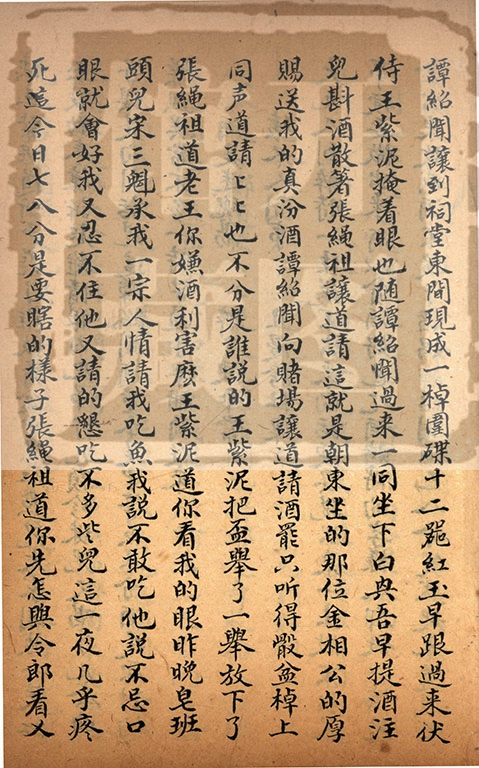 譚紹聞讓到祠堂東間現成一棹圍碟十二器紅玉早跟過来伏
侍王紫泥掩着眼也随譚紹聞過来一同坐下白與吾早提酒注
兒斟酒散箸張繩祖讓道請這就是朝東坐的那位金相公的厚
賜送我的真汾酒譚紹聞向賭場讓道請酒罷只听得骰盆棹上
同声道請上上也不分是誰説的王紫泥把盃舉了一舉放下了
張繩祖道老王你嫌酒利害麽王紫泥道你看我的眼昨晚皂班
頭兒宋三魁承我一宗人情請我吃魚我說不敢吃他說不忌口
眼就會好我又忍不住他又請的懇吃不多些兒這一夜几乎疼
死這今日七八分是要瞎的樣子張繩祖道你先怎與令郎看乂